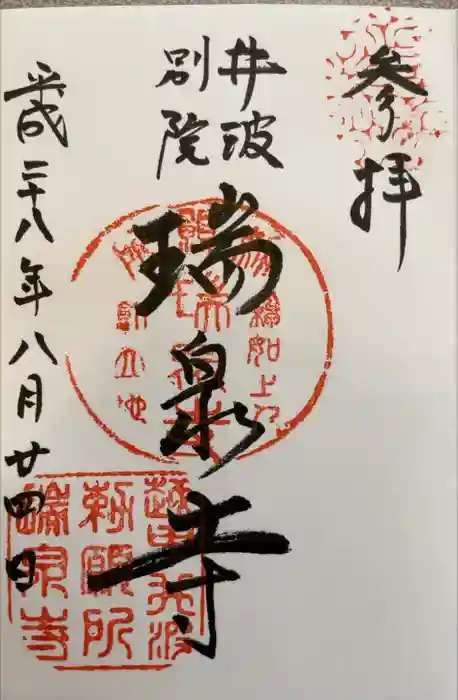 参拝
井波
別院
瑞泉寺
平成二十八年八月廿四日
綽如上人
越中井波
勅願所
瑞泉寺